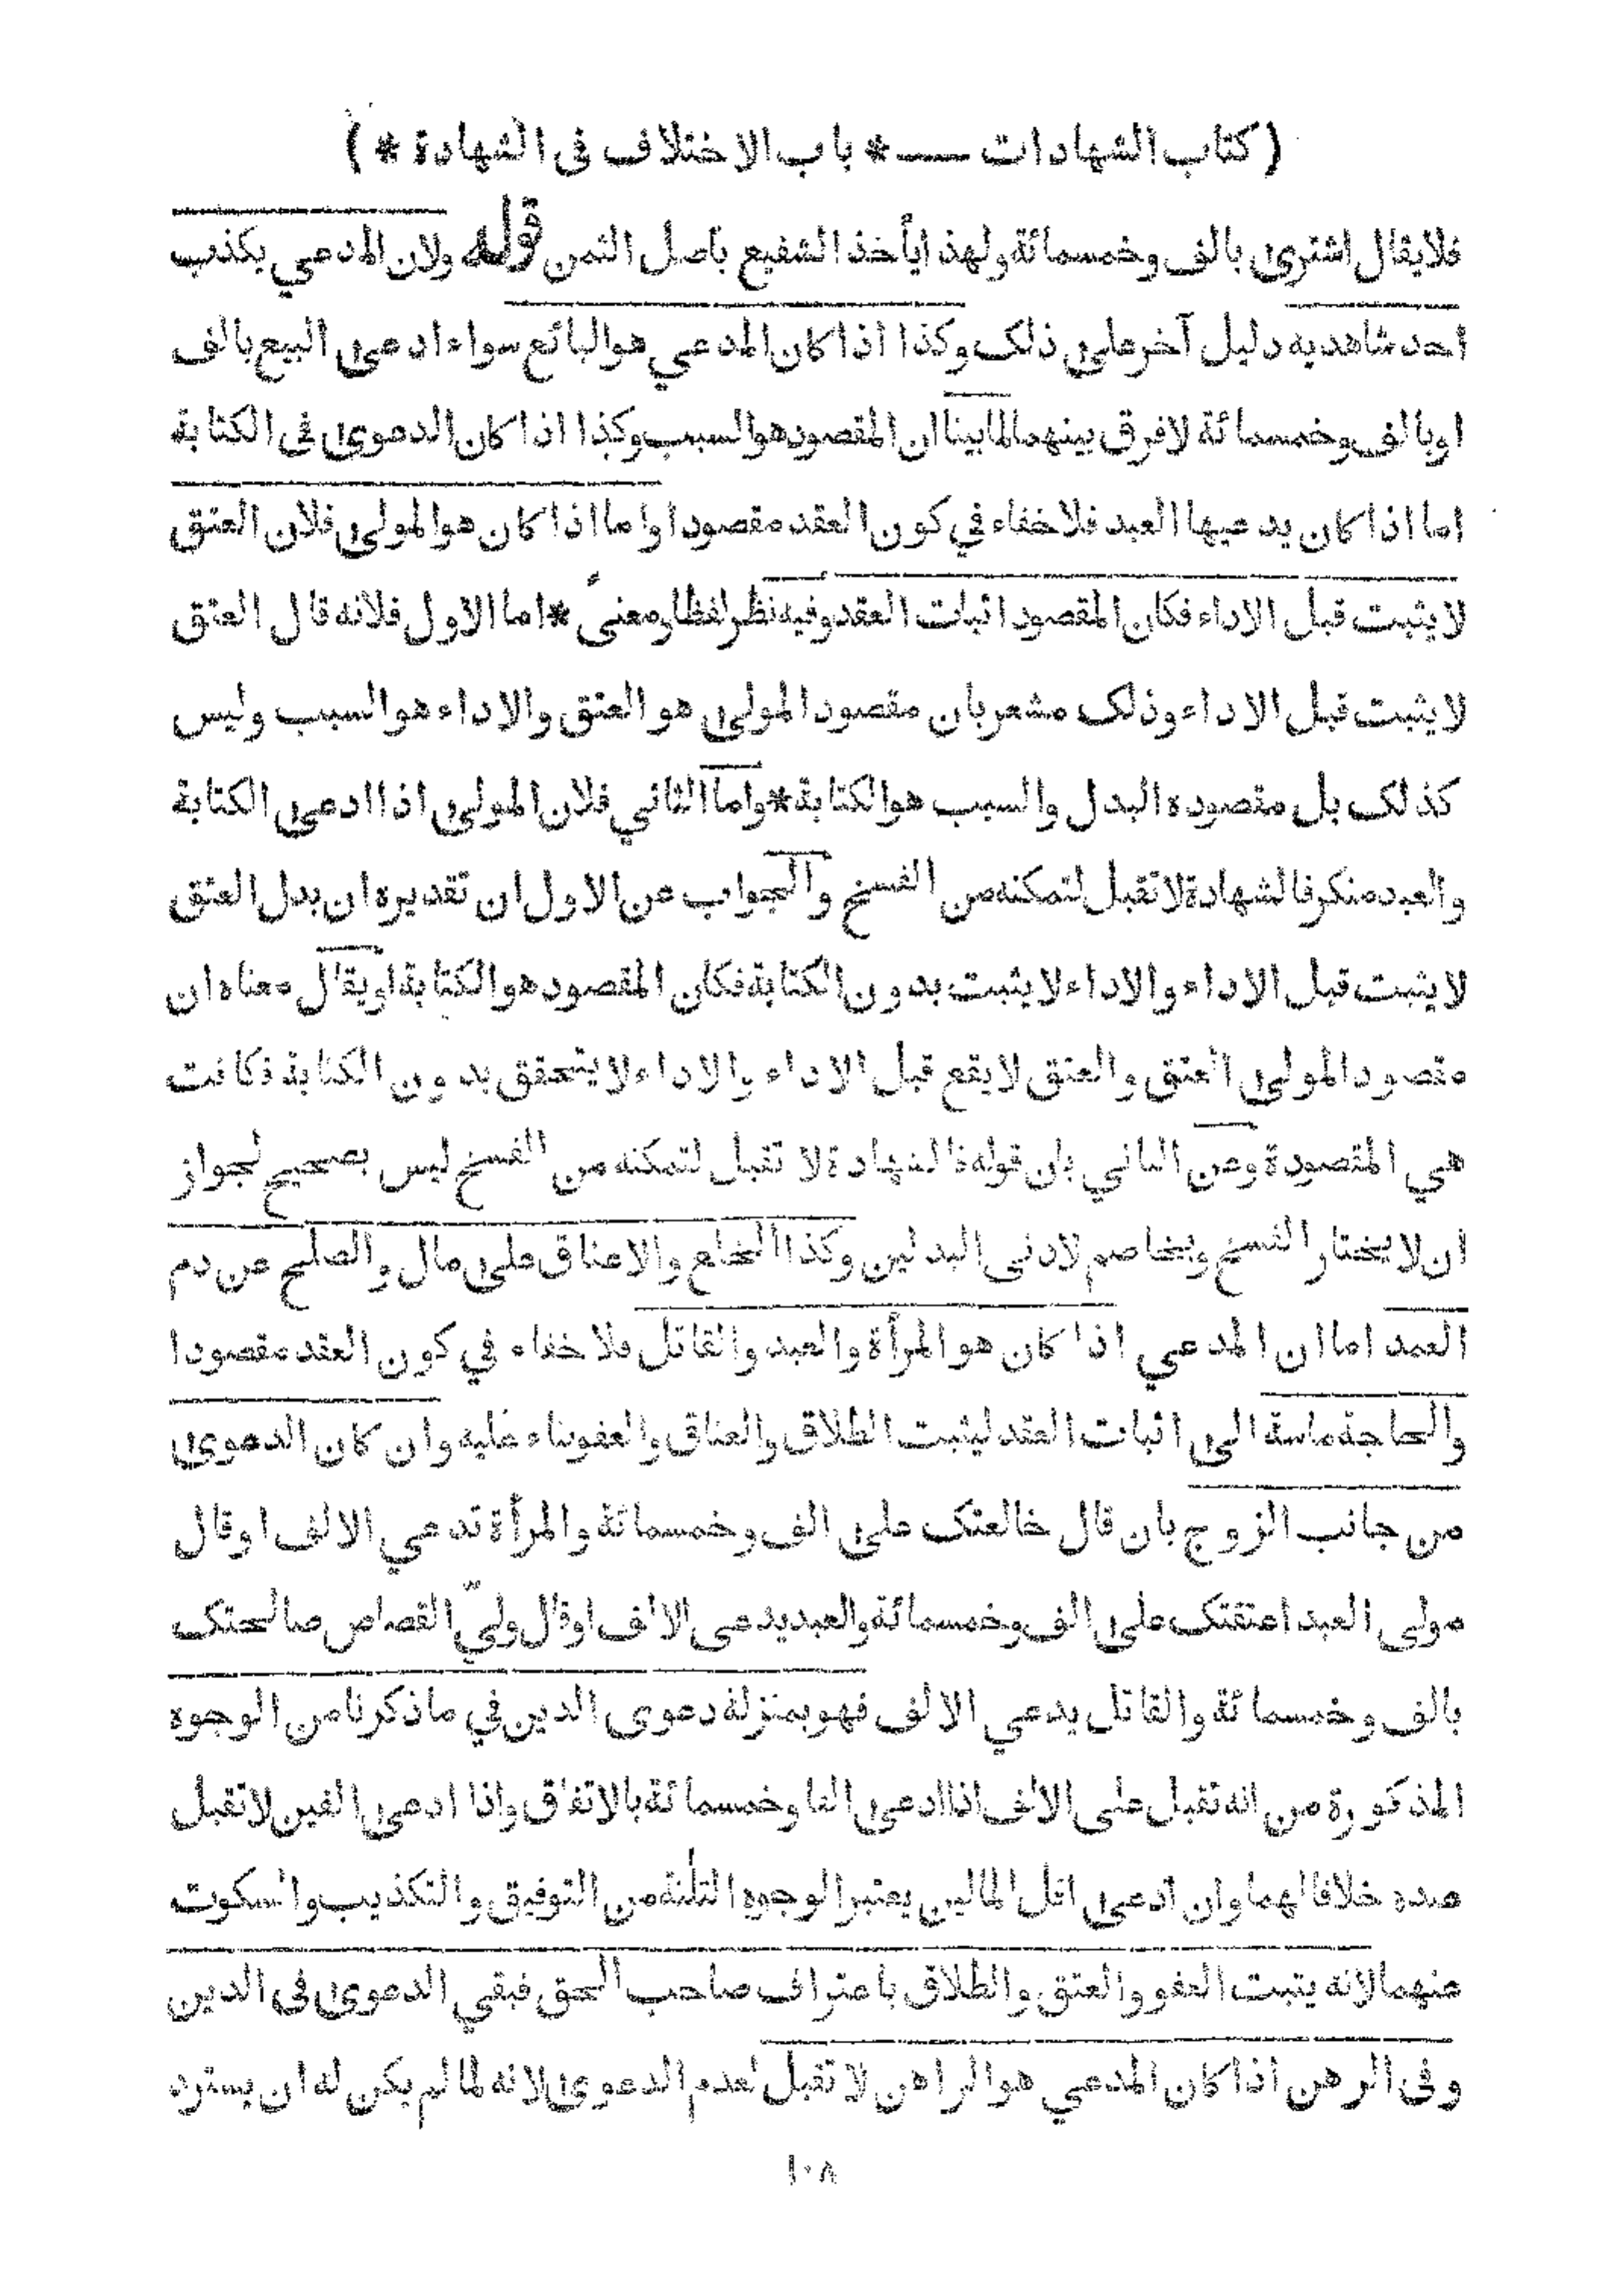 ( كتاب الشهادات — * باب الاختلاف فى الشهادة * )
فلا يقال اشترى بالف وخمسمائة ولهذا يأخذ الشفيع باصل الثمن قوله ولان المدعي يكذب
احد شاهديه دليل آخر على ذلك وكذا اذا كان المدعي هو البائع سواء ادعى البيع بالف
او بالف وخمسمائة لا فرق بينهما لما بينا ان المقصود هو السبب وكذا اذا كان الدعوى فى الكتابة
اما اذا كان يدعيها العبد فلا خفاء في كون العقد مقصودا واما اذا كان هو المولى فلان العتق
لا يثبت قبل الاداء فكان المقصود اثبات العقد وفيه نظر لفظا ومعنىً * اما الاول فلانه قال العتق
لا يثبت قبل الاداء وذلك مشعر بان مقصود المولى هو العتق والاداء هو السبب وليس
كذلك بل مقصوده البدل والسبب هو الكتابة * واما الثاني فلان المولى اذا ادعى الكتابة
والعبد منكر فالشهادة لا تقبل لتمكنه من الفسخ والجواب عن الاول ان تقديره ان بدل العتق
لا يثبت قبل الاداء والاداء لا يثبت بدون الكتابة فكان المقصود هو الكتابة او يقال معناه ان
مقصود المولى العتق والعتق لا يقع قبل الاداء والاداء لا يتحقق بدون الكتابة فكانت
هي المقصودة وعن الثاني بان قوله فالشهادة لا تقبل لتمكنه من الفسخ ليس بصحيح لجواز
ان لا يختار الفسخ ويخاصم لادنى البدلين وكذا الخلع والاعتاق على مال والصلح عن دم
العمد اما ان المدعي اذا كان هو المرأة والعبد والقاتل فلا خفاء في كون العقد مقصودا
والحاجة ماسة الى اثبات العقد ليثبت الطلاق والعتاق والعفو بناء عليه وان كان الدعوى
من جانب الزوج بان قال خالعتك على الف وخمسمائة والمرأة تدعي الالف او قال
مولى العبد اعتقتك على الف وخمسمائة والعبد يدعى الالف او قال وليّ القصاص صالحتك
بالف وخمسمائة والقاتل يدعي الالف فهو بمنزلة دعوى الدين في ما ذكرنا من الوجوه
المذكورة من انه تقبل على الالف اذا ادعى الفا وخمسمائة بالاتفاق واذا ادعى الفين لا تقبل
عنده خلافا لهما وان ادعى اقل المالين يعتبر الوجوه الثلثة من التوفيق والتكذيب والسكوت
عنهما لانه يثبت العفو والعتق والطلاق باعتراف صاحب الحق فبقي الدعوى فى الدين
وفى الرهن اذا كان المدعي هو الراهن لا تقبل لعدم الدعوى لانه لما لم يكن له ان يسترد
١٠٨